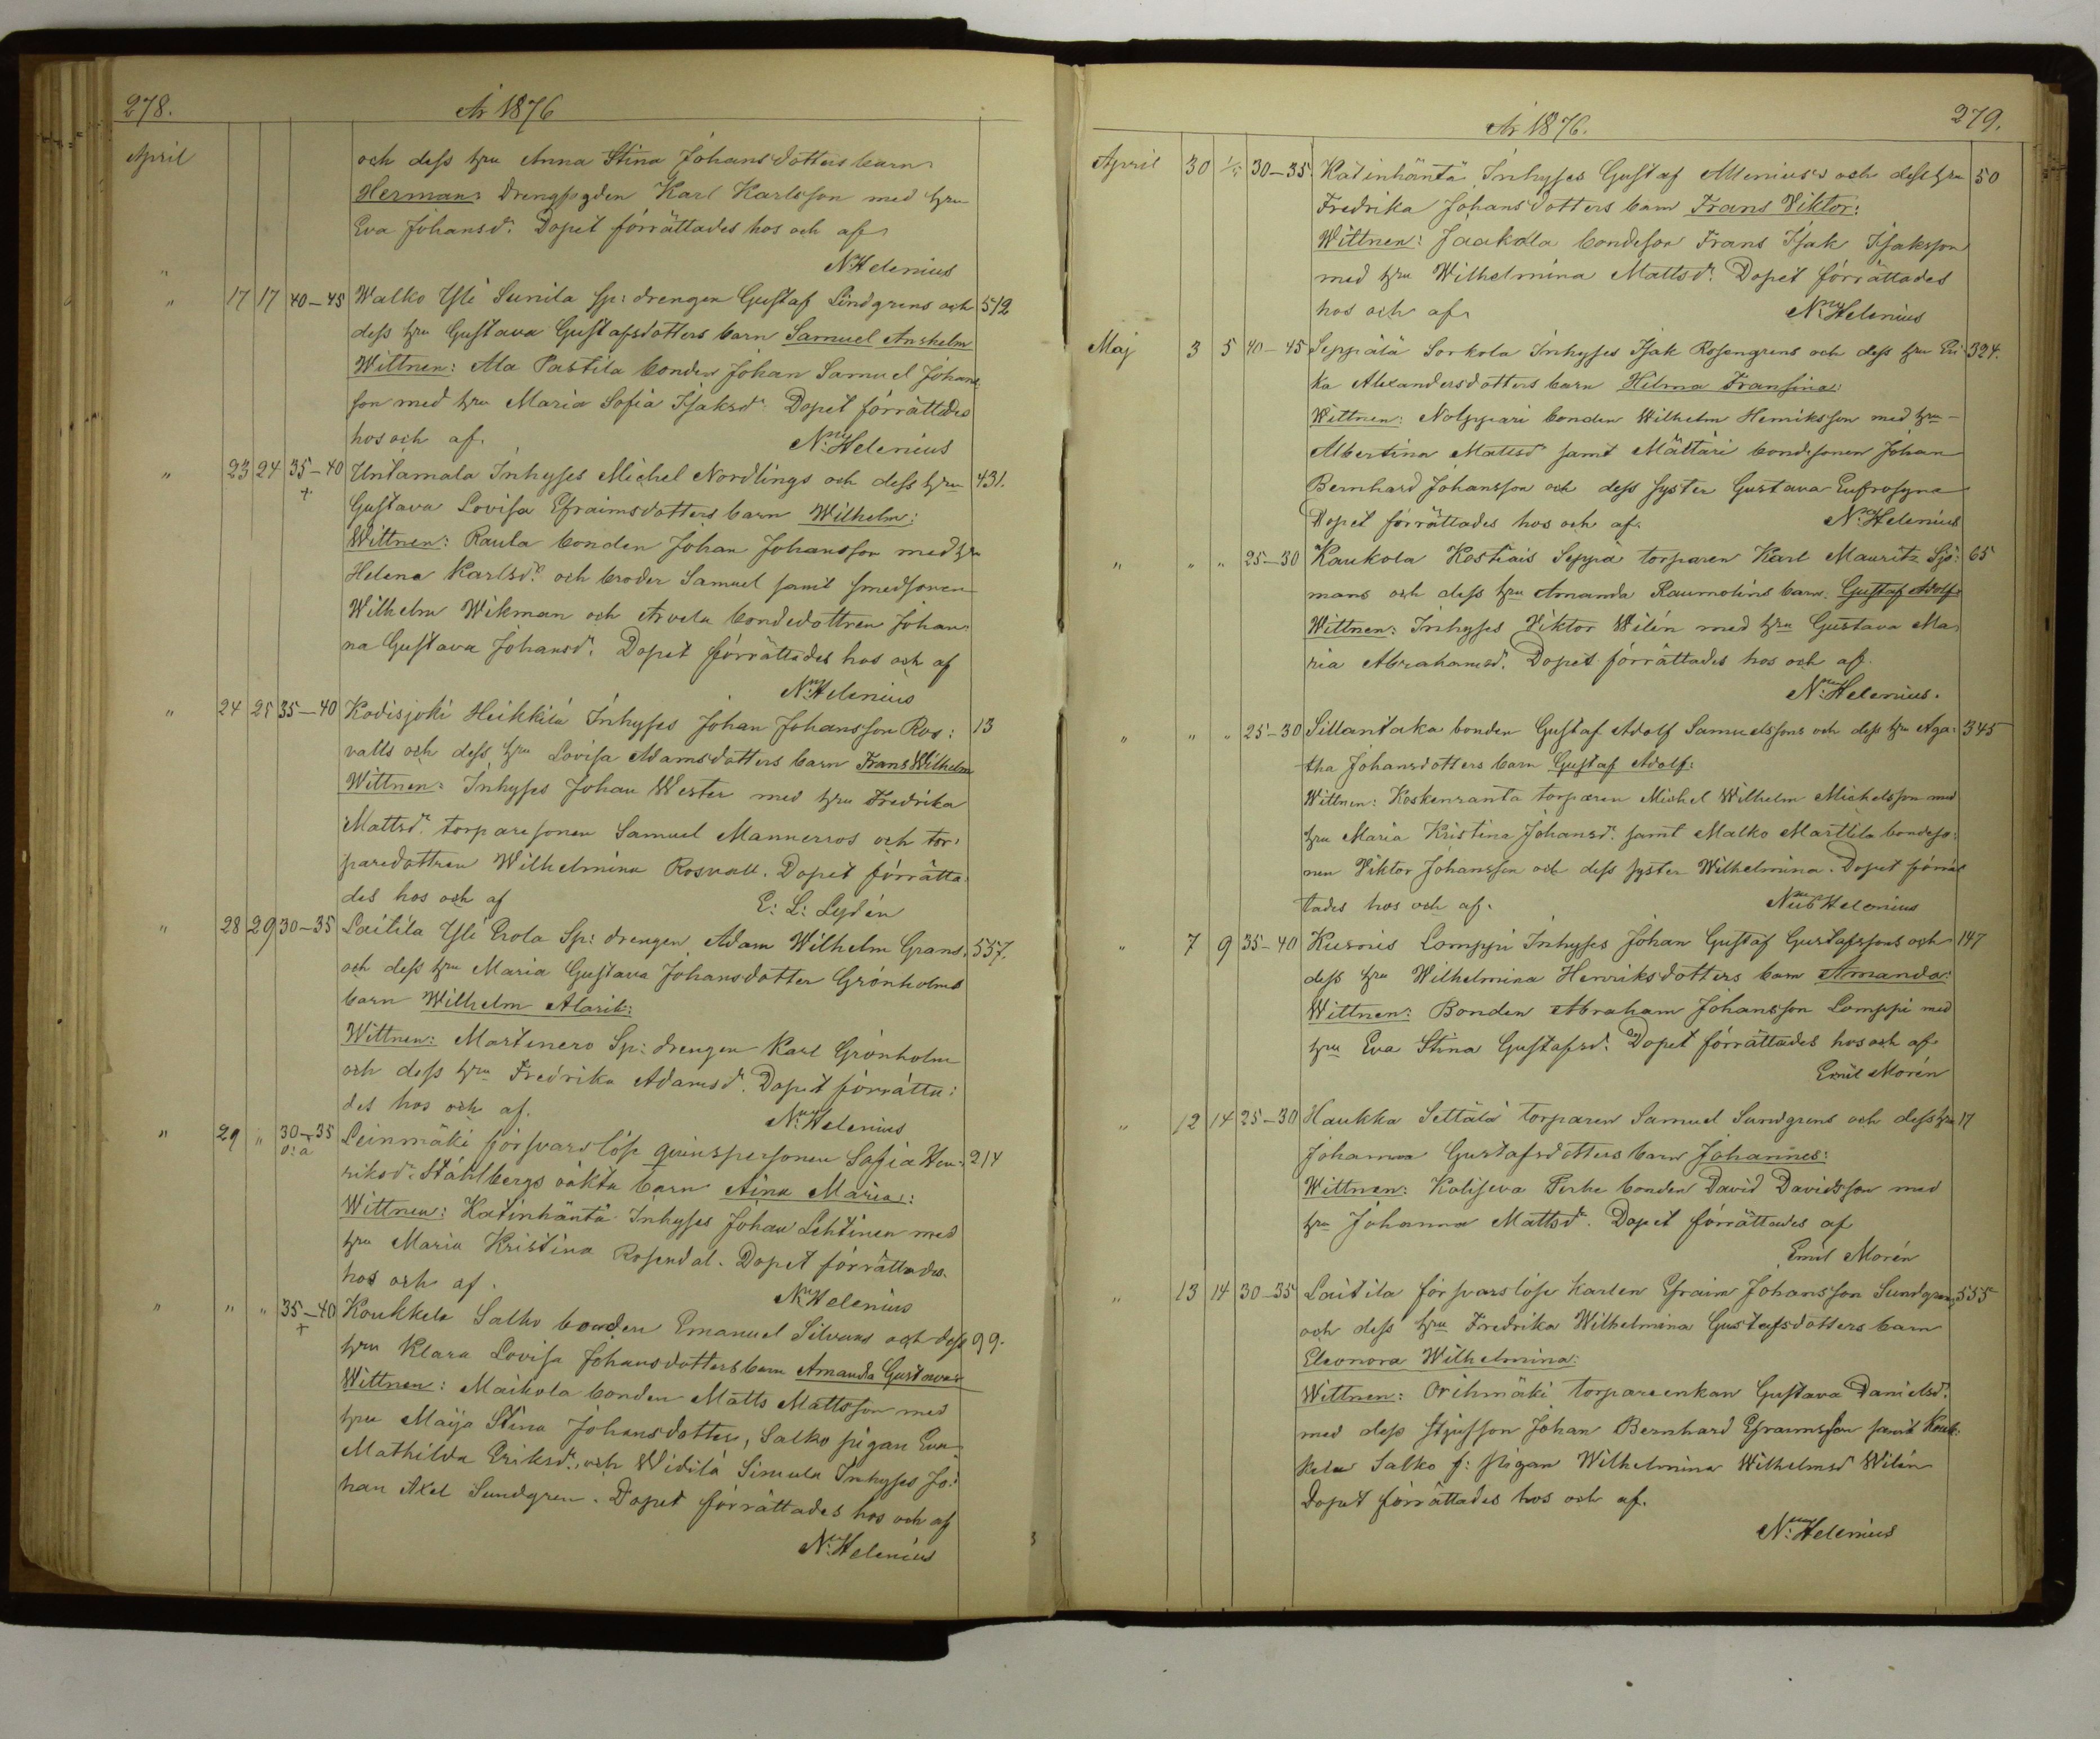 278.
År 1876
April och dess hru Anna Stina Johansdotters barn
Herman: Drengfogden Karl Karlsson med hru
Eva Johansdr. Dopet förrättades hos och af
" N. Helenius
" 17 17 40-45 Walko Yli Sunila sp: drengen Gustaf Lindgrens och 512
dess hru Gustava Gustafsdotters barn Samuel Anshelm
Wittnen: Ala Pastila bonden Johan Samuel Johans
son med hru Maria Sofia Isaksdr. Dopet förrättades
hos och af. N. Helenius
" 23 24 35-40 Untamala Inhyses Michel Nordlings och dess hru 431.
+
Gustava Lovisa Efraimsdotters barn Wilhelm:
Wittnen: Raula bonden Johan Johansson med hru
Helena Karlsdr. och broder Samuel samt smedsonen
Wilhelm Wikman och Arvela bondedottren Johan:
na Gustava Johansdr. Dopet förrättades hos och af
N. Helenius
" 24 25 35-40 Kodisjoki Heikkilä Inhyses Johan Johansson Ros: 13
valls och dess hru Lovisa Adamsdotters barn Frans Wilhelm
Wittnen: Inhyses Johan Wester med hru Fredrika
Mattsdr. torparesonen Samuel Mannerros och tor:
paredottren Wilhelmina Rosvall. Dopet förrätta
des hos och af E: L: Lydén
" 28 29 30-35 Laitila Yli Erola Sp: drengen Adam Wilhelm Grans 557.
och dess hru Maria Gustava Johansdotter Grönholms
barn Wilhelm Alarik:
Wittnen: Martinero Sp: drengen Karl Grönholm
och dess hru Fredrika Adamsdr. Dopet förrätta:
des hos och af. N. Helenius
" 29 " 30-35 Leinmäki försvarslösa qvinspersonen Sofia Hen: 214
o: a
riksdr. Ståhlbergs oäkta barn Aina Maria:
Wittnen: Katinhäntä Inhyses Johan Lehtinen med
hru Maria Kristina Rosendal. Dopet förrättades
hos och af. N. Helenius
" " " 35-40 Koukkela Salko bonden Emanuel Silvans och dess 99.
+
hru Klara Lovisa Johansdotters barn Amanda Gustava:
Wittnen: Maikola bonden Matts Mattsson med
hru Maija Stina Johansdotter, Salko pigan Eva
Mathilda Eriksdr., och Widilä Simula Inhyses Jo:
han Axel Sundgren. Dopet förrättades hos och af
N. Helenius
År 1876. 279.
April 30 1/5 30-35 Katinhäntä Inhyses Gustaf Menius's och dess hru 50
Fredrika Johansdotters barn Frans Viktor:
Wittnen: Jaakola bondeson Frans Isak Isaksson
med hru Wilhelmina Mattsdr. Dopet förrättades
hos och af N. Helenius
Maj 3 5 40-45 Seppälä Sorkola Inhyses Isak Rosengrens och dess hru Eri: 324.
ka Alexandersdotters barn Hilma Fransina:
Wittnen: Nolppari bonden Wilhelm Henriksson med hru
Albertina Mattsdr samt Mättäri bondesonen Johan
Bernhard Johansson och dess syster Gustava Eufrosyna
Dopet förrättades hos och af. N. Helenius
" " " 25-30 Kaukola Kostiais Seppä torparen Karl Mauritz Sjö: 65
mans och dess hru Amanda Raumolins barn Gustaf Adolf
Wittnen: Inhyses Viktor Wilén med hru Gustava Ma
ria Abrahamsd. Dopet förrättades hos och af
N. Helenius.
" " " 25-30 Sillantaka bonden Gustaf Adolf Samuelssons och dess hru Aga: 345
tha Johansdotters barn Gustaf Adolf:
Wittnen: Koskenranta torparen Michel Wilhelm Michelsson med
hru Maria Kristina Johansdr. samt Malko Marttila bondeso:
nen Viktor Johansson och dess syster Wilhelmina. Dopet förrät
tades hos och af. Nils Helenius
" 7 9 35-40 Kusnis Lomppi Inhyses Johan Gustaf Gustafssons och 147
dess hru Wilhelmina Henriksdotters barn Amanda:
Wittnen: Bonden Abraham Johansson Lomppi med
hru Eva Stina Gustafsdr. Dopet förrättades hos och af
Emil Morén
" 12 14 25-30 Haukka Settälä torparen Samuel Sundgrens och dess hru 17
Johanna Gustafsdotters barn Johannes:
Wittnen: Kaliseva Perhe bonden David Davidsson med
hru Johanna Mattsdr. Dopet förrättades af
Emil Morén
" 13 14 30-35 Laitila försvarslöse karlen Efraim Johansson Sundgrens 555
och dess hru Fredrika Wilhelmina Gustafsdotters barn
Eleonora Wilhelmina:
Wittnen: Orihmäki torpareenkan Gustava Danielsdr.
med dess styfson Johan Bernhard Efraimsson samt Kouk:
kela Salko f: pigan Wilhelmina Wilhelmsdr Wilén
Dopet förrättades hos och af.
N. Helenius